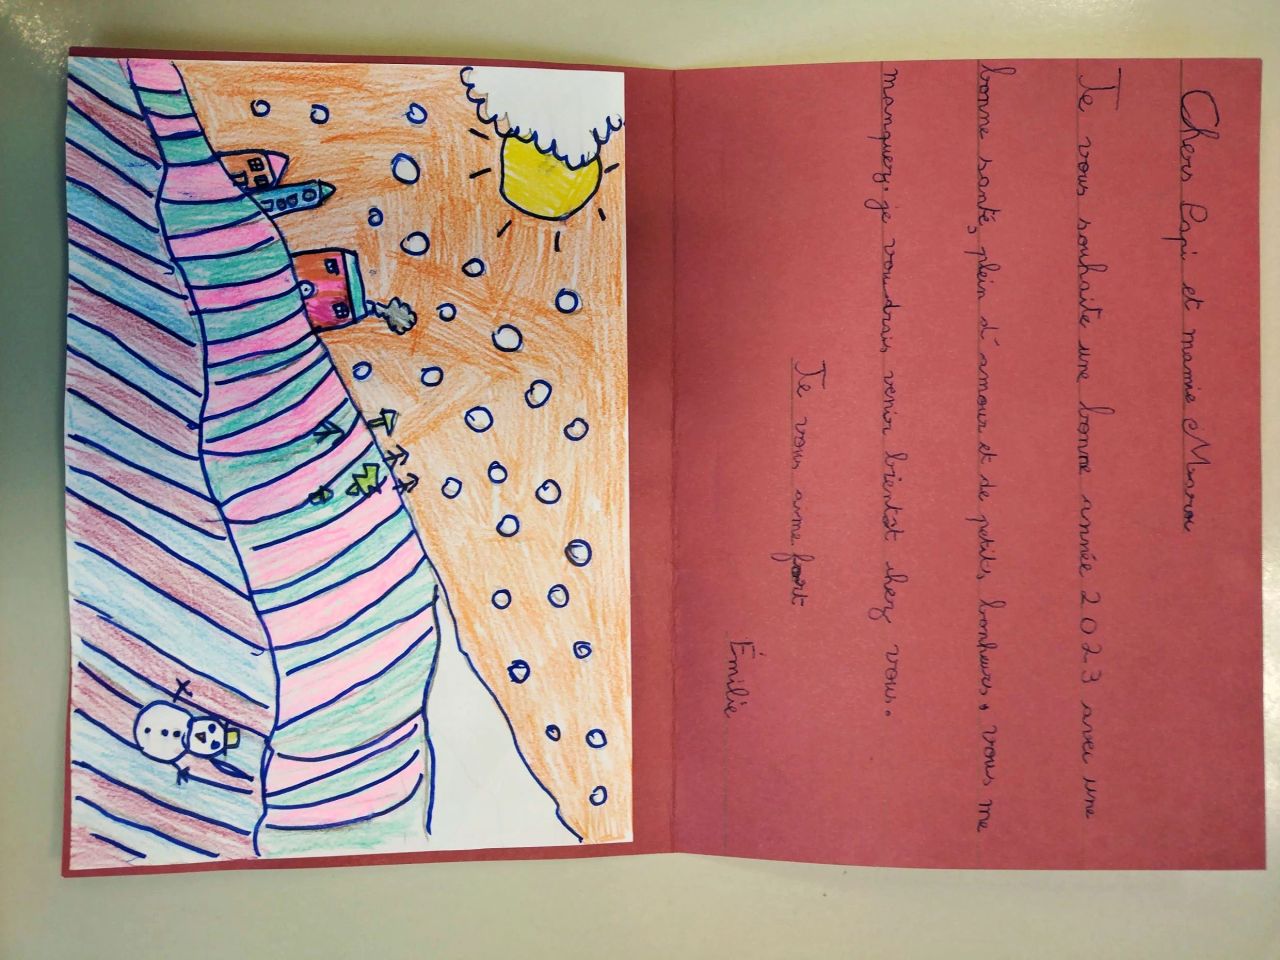 Chers Papi et mamie Marou
Je vous souhaite une bonne année 2023 avec une
bonne santé, plein d'amour et de petits bonheurs, vous me
manquez, je voudrais venir bientot chez vous.
Je vous aime fort
Émilie